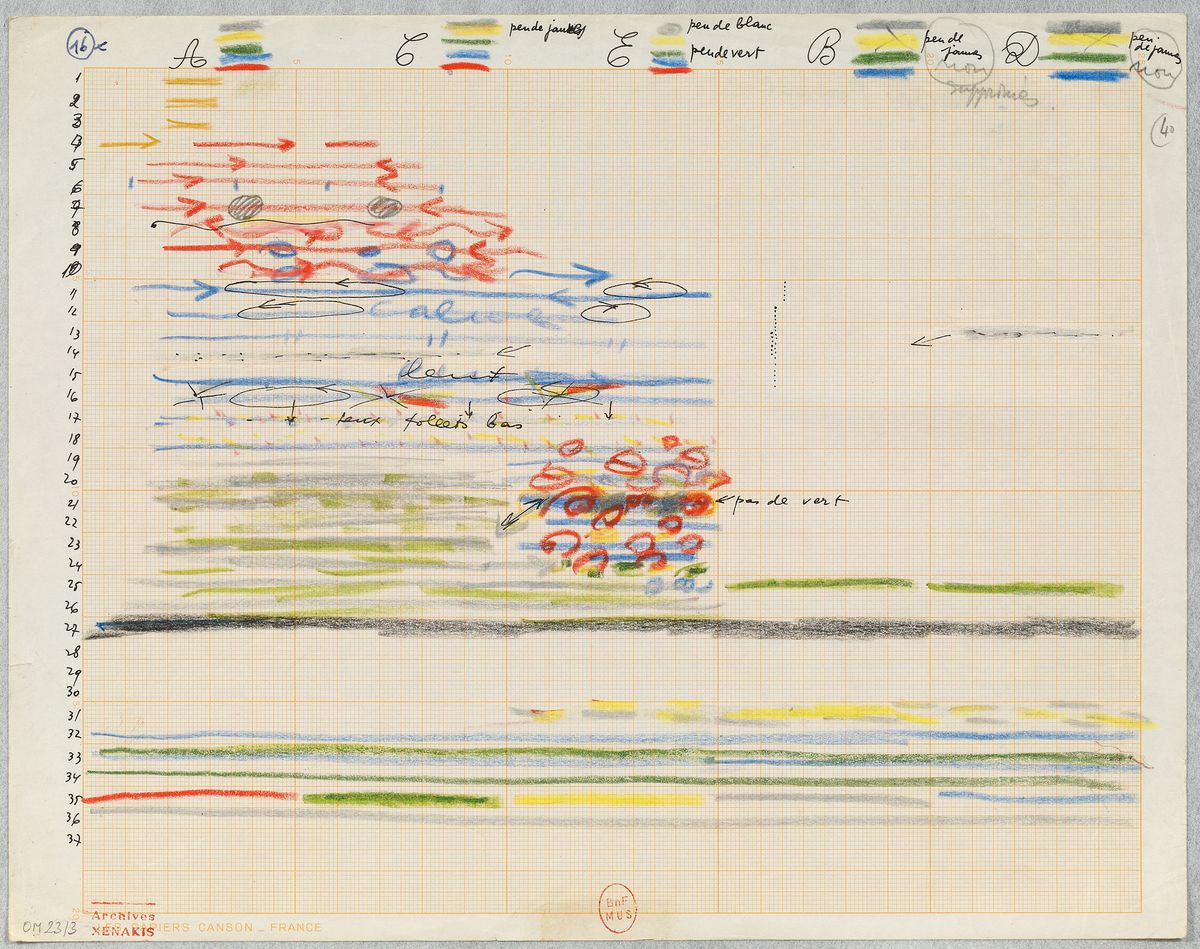 16e
A
C
peu de jaune
E
peu de blanc
peu de vert
B
peu de
jaune
non
supprimés.
D
peu
de jaune
non
40
1
2
3
4
5
6
7
8
9
10
11
12
calme
13
14
15
lent
16
17
feux follets bas
18
19
20
21
pas de vert
22
23
24
25
26
27
28
29
30
31
32
33
34
35
36
37
5
10
15
20
OM 23/3
Archives
XENAKIS
PAPIERS CANSON _ FRANCE
BnF
MUS